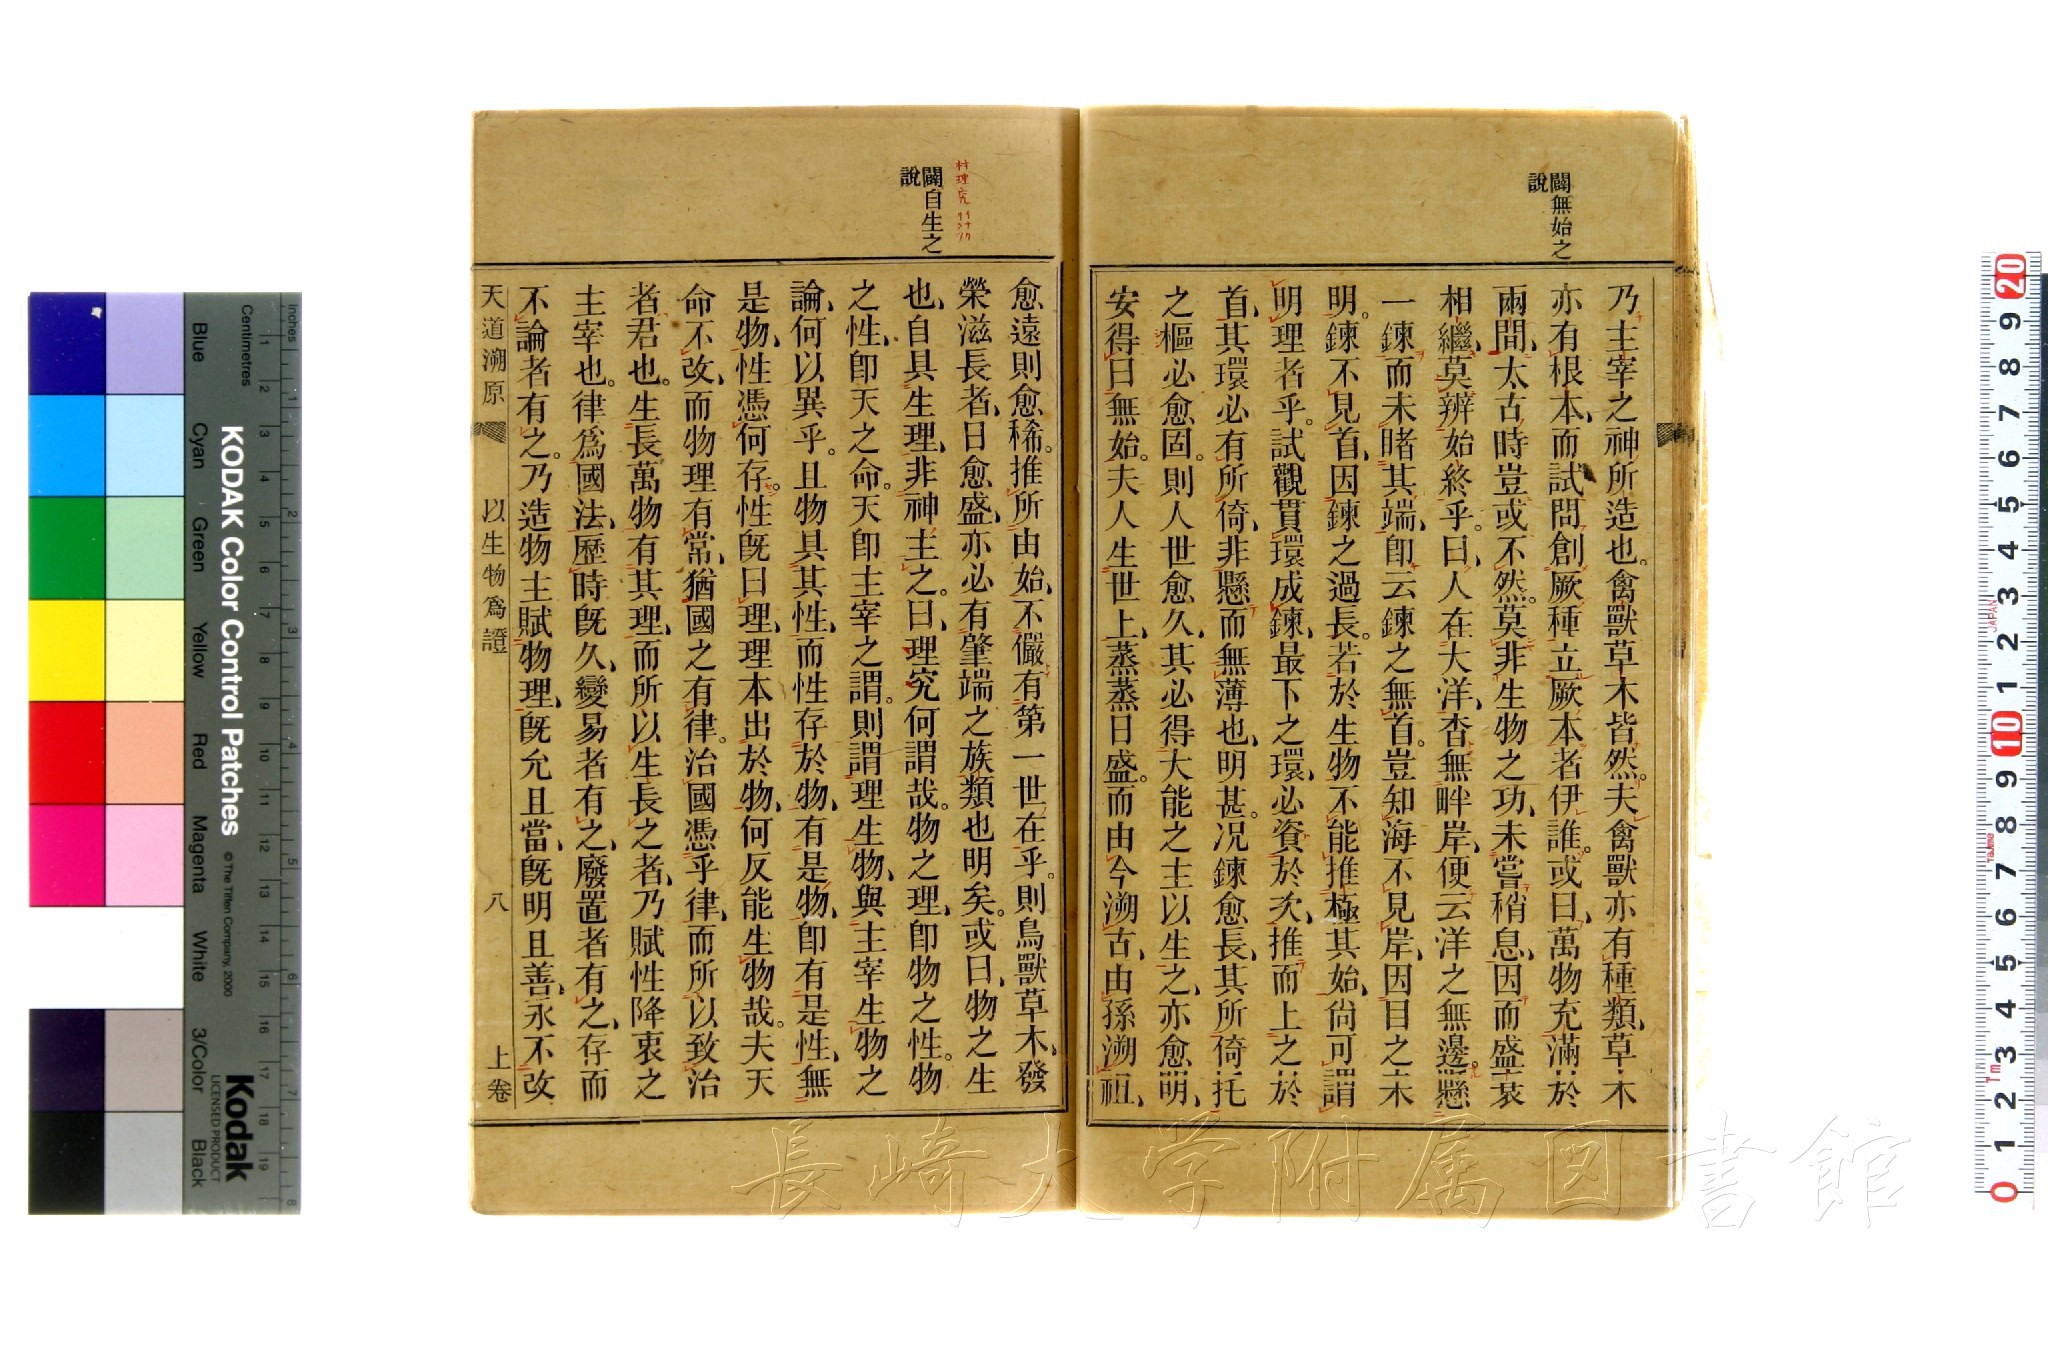 闢無始之
說
乃主宰之神所造也。禽獸草木皆然。夫禽獸亦有種類、草木
亦有根本、而試問創厥種立厥本者伊誰。或曰、萬物充滿於
兩間、太古時豈或不然。莫非生物之功、未嘗稍息、因而盛衰
相繼、莫辨始終乎。曰、人在大洋、杳無畔岸、便云洋之無邊。懸
一鍊而未睹其端、卽云鍊之無首。豈知海不見岸、因目之未
明。鍊不見首、因鍊之過長。若於生物不能推極其始、尙可謂
明理者乎。試觀貫環成鍊、最下之環、必資於次、推而上之於
首、其環必有所倚、非懸而無薄也、明甚。况鍊愈長、其所倚托
之樞必愈固。則人世愈久、其必得大能之主以生之、亦愈明、
安得曰無始。夫人生世上、蒸蒸日盛。而由今溯古、由孫溯祖、
闢自生之
說
愈遠則愈稀。推所由始、不儼有第一世在乎。則鳥獸草木、發
榮滋長者、日愈盛、亦必有肇端之族類也明矣。或曰、物之生
也、自具生理、非神主之。曰、理究何謂哉。物之理、卽物之性。物
之性、卽天之命。天卽主宰之謂。則謂理生物、與主宰生物之
論、何以異乎。且物具其性、而性存於物、有是物、卽有是性、無
是物、性憑何存。性旣曰理、理本出於物、何反能生物哉。夫天
命不改、而物理有常、猶國之有律。治國憑乎律、而所以致治
者君也。生長萬物有其理、而所以生長之者、乃賦性降衷之
主宰也。律爲國法、歷時旣久、變易者有之、廢置者有之、存而
不論者有之。乃造物主賦物理、旣允且當、旣明且善、永不改
天道溯原 以生物爲證 八 上卷
KODAK Color Control Patches
© The Tiffen Company, 2000
Kodak
LICENSED PRODUCT
Inches
Centimetres
Blue Cyan Green Yellow Red Magenta White 3/Color Black
長崎大学附属図書館